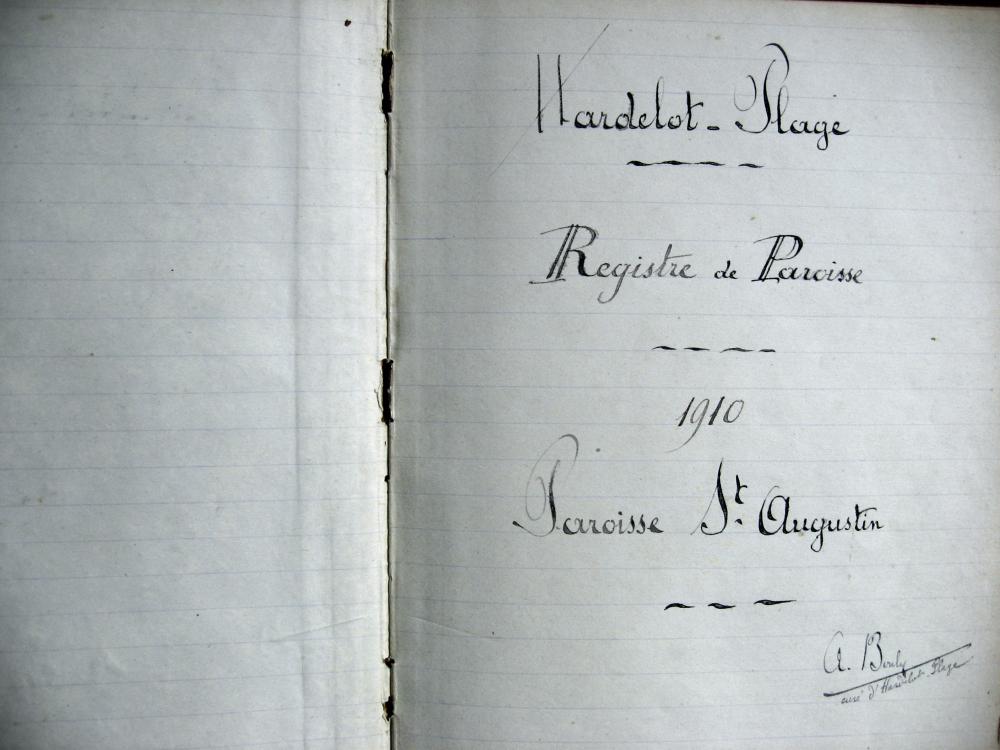 Hardelot-Plage
Registre de Paroisse
1910
Paroisse St. Augustin
A. Bouly
curé d'Hardelot-Plage